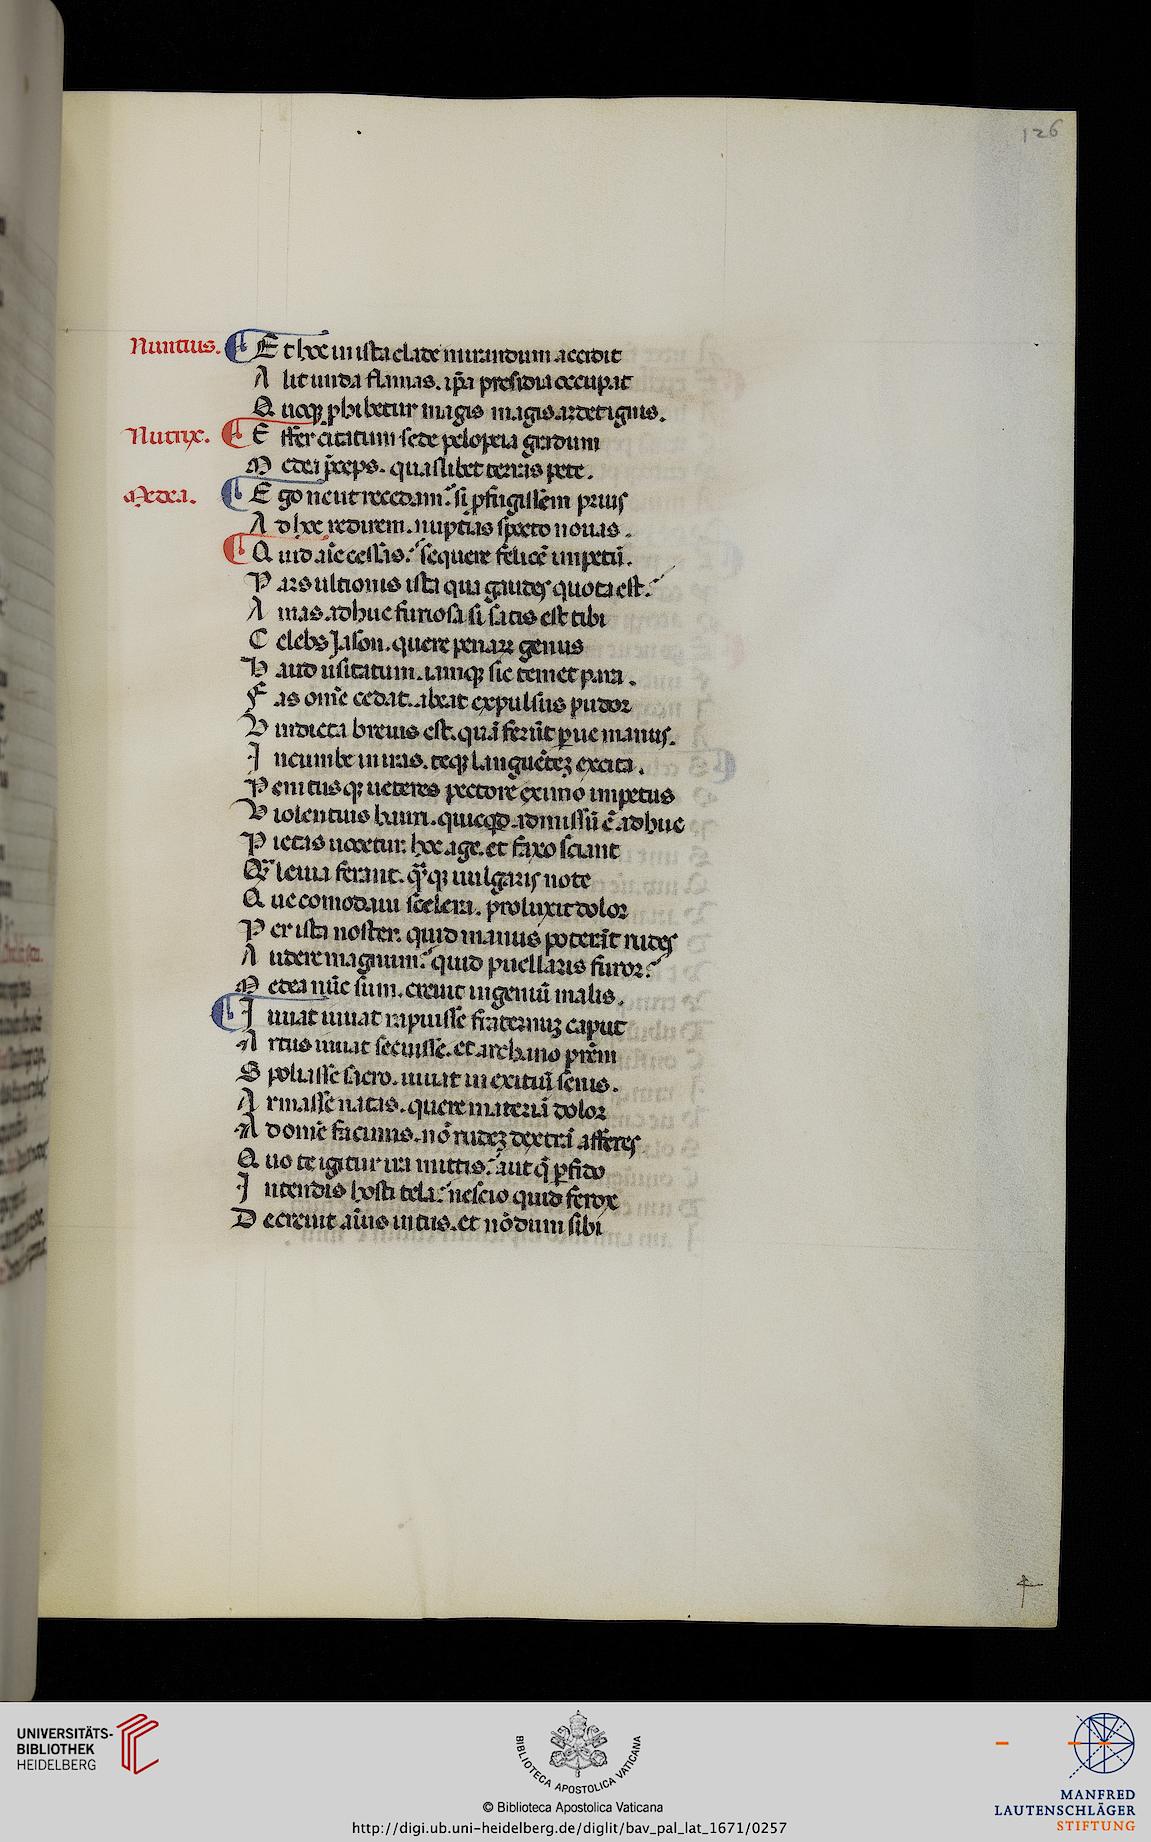 126
Nuntius. Et hoc in ista clade mirandum accidit
Alit unda flamas. ip̃a presidia occupat
Quoq; ꝓhibetur magis magis ardet ignis.
Nutrix. Effer citatum sede pelopeia gradum
Medea p̃ceps. quaslibet terras pete.
Medea. Ego ne ut recedam. si ꝓfugissem prius
Ad hoc redirem. nuptias specto nouas.
Quid aĩe cessas. sequere felicẽ impetũ.
Pars ultionis ista qua gaudes quota est.
Amas adhuc furiosa si satis est tibi
Celebs Jason. quere penarꝝ genus
Haud usitatum. iamq; sic temet para.
Fas omẽ cedat. abeat expulsus pudor
Vindicta breuis est. quã ferũt pure manus.
Incumbe in iras. teq; languẽtẽ excita.
Penitusq; ueteres pectore ex imo impetus
Violentius hauri. quicqd̃ admissũ ẽ adhuc
Pietas uocetur. hoc age. et faxo sciant
Q̃ leuia ferant. q̃q; uulgaris note
Que comodaui sceleri. prolusit dolor
Per ista noster. quid manus poterãt rudes
Audere magnum. quid puellaris furor.
Medea nũc sum. creuit ingeniũ malis.
Juuat iuuat rapuisse fraternuʒ caput
Artus iuuat secuisse. et archano prẽm
Spoliasse sacro. iuuat in exitiũ senis.
Armasse natas. quere materiã dolor
Ad omẽ facinus. nõ rudeʒ dextrã afferes
Quo te igitur ira mittis. aut q̃ ꝑfido
Intendis hosti tela. nescio quid ferox
Decreuit aĩus intus. et nõdum sibi
UNIVERSITÄTS-
BIBLIOTHEK
HEIDELBERG
BIBLIOTECA APOSTOLICA VATICANA
© Biblioteca Apostolica Vaticana
http://digi.ub.uni-heidelberg.de/diglit/bav_pal_lat_1671/0257
MANFRED
LAUTENSCHLÄGER
STIFTUNG